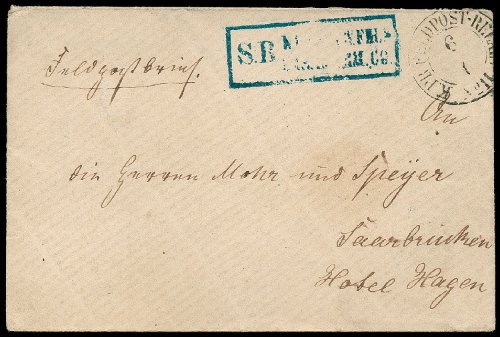 Feldpostbrief.
S.B.
6
An
die Herren Mohr und Speyer
Saarbrücken
Hotel Hagen